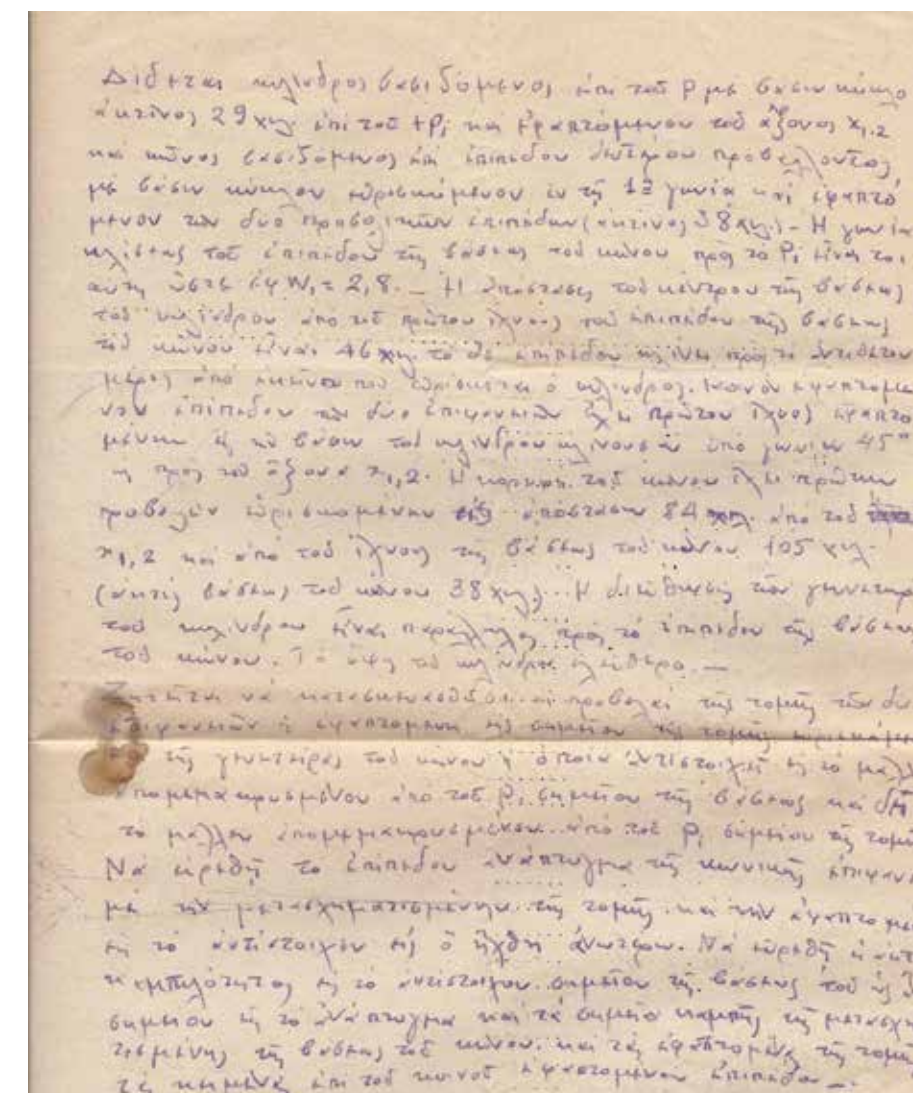 Δίδεται κύλινδρος βασιζόμενος ἐπὶ τοῦ P₁ μὲ βάσιν κύκλο
ἀκτῖνος 29 χιλ. ἐπὶ τοῦ +P₁ καὶ ἐφαπτόμενον τοῦ ἄξονος x₁.₂
καὶ κῶνος βασιζόμενος ἐπὶ ἐπιπέδου δευτέρου προβάλλοντος,
μὲ βάσιν κύκλον εὑρισκόμενον ἐν τῇ 1ῃ γωνίᾳ καὶ ἐφαπτό
μενον τῶν δύο προβολικῶν ἐπιπέδων (ἀκτῖνος 38 χιλ.) - Ἡ γωνία
κλίσεως τοῦ ἐπιπέδου τῆς βάσεως τοῦ κώνου πρὸς τὸ P₁ εἶναι τοι
αύτη ὥστε ἐφ W₁ = 2,8. _ Ἡ ἀπόστασις τοῦ κέντρου τῆς βάσεως
τοῦ κυλίνδρου ἀπὸ τοῦ πρώτου ἴχνους τοῦ ἐπιπέδου τῆς βάσεως
τοῦ κώνου εἶναι 46 χιλ. τὸ δὲ ἐπίπεδον κλίνει πρὸς τὸ ἀντίθετον
μέρος ἀπὸ ἐκεῖνο ποὺ εὑρίσκεται ὁ κύλινδρος. Κοινὸν ἐφαπτόμε
νον ἐπίπεδον τῶν δύο ἐπιφανειῶν ἔχει πρῶτον ἴχνος ἐφαπτο
μένην εἰς τὴν βάσιν τοῦ κυλίνδρου κλίνουσαν ὑπὸ γωνίαν 45°
πρὸς τὸν ἄξονα x₁,₂. Ἡ κορυφὴ τοῦ κώνου ἔχει πρώτην
προβολὴν εὑρισκομένην εἰς ἀπόστασιν 84 χιλ. ἀπὸ τοῦ
x₁,₂ καὶ ἀπὸ τοῦ ἴχνους τῆς βάσεως τοῦ κώνου 105 χιλ.
(ἀκτὶς βάσεως τοῦ κώνου 38 χιλ.). Ἡ διεύθυνσις τῶν γενετειρ
τοῦ κυλίνδρου εἶναι παράλληλος πρὸς τὸ ἐπίπεδον τῆς βάσεω
τοῦ κώνου. Τὸ ὕψος τοῦ κυλίνδρου ἐλεύθερο. _
Ζητεῖται νὰ κατασκευασθῶσι αἱ προβολαὶ τῆς τομῆς τῶν δύ
ἐπιφανειῶν ἡ ἐφαπτομένη εἰς σημεῖον τῆς τομῆς εὑρισκόμε
τῆς γενετείρας τοῦ κώνου ἡ ὁποία ἀντιστοιχεῖ εἰς τὸ μᾶλλ
ἀπομεμακρυσμένον ἀπὸ τοῦ P₁ σημεῖον τῆς βάσεως καὶ
τὸ μᾶλλον ἀπομεμακρυσμένον ἀπὸ τοῦ P₁ σημεῖον τῆς τομῆ
Νὰ εὑρεθῇ τὸ ἐπίπεδον ἀνάπτυγμα τῆς κωνικῆς ἐπιφανε
μὲ τὴν μετασχηματισμένην τῆς τομῆς καὶ τὴν ἐφαπτομέ
εἰς τὸ ἀντίστοιχον εἰς ὃ ἤχθη ἀνωτέρω. Νὰ εὑρεθῇ ἡ ἀκτ
καμπυλότητος εἰς τὸ ἀντίστοιχον σημεῖον τῆς βάσεως τοῦ
σημείου εἰς τὸ ἀνάπτυγμα καὶ τὰ σημεῖα καμπῆς τῆς μετασχη
τισμένης τῆς βάσεως τοῦ κώνου. καὶ τὰ ἐφαπτόμενα τῆς τομῆ
τὰ κείμενα ἐπὶ τοῦ κοινοῦ ἐφαπτομένου ἐπιπέδου _.